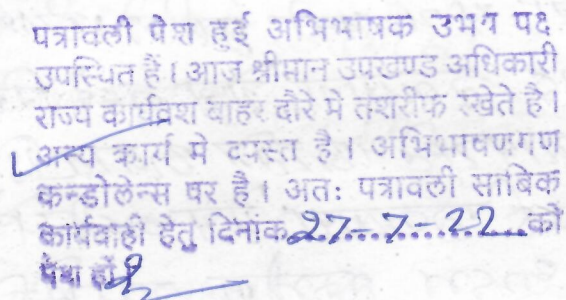 पत्रावली पेश हुई अभिभाषक उभय पक्ष
उपस्थित है। आज श्रीमान उपखण्ड अधिकारी
राज्य कार्यवश बाहर दौरे मे तशरीफ रखेते है।
अन्य कार्य मे व्यस्त है। अभिभाषणगण
कन्डोलेन्स पर है। अतः पत्रावली साबिक
कार्यवाही हेतु दिनांक 27-7-22 को
पेश हो।